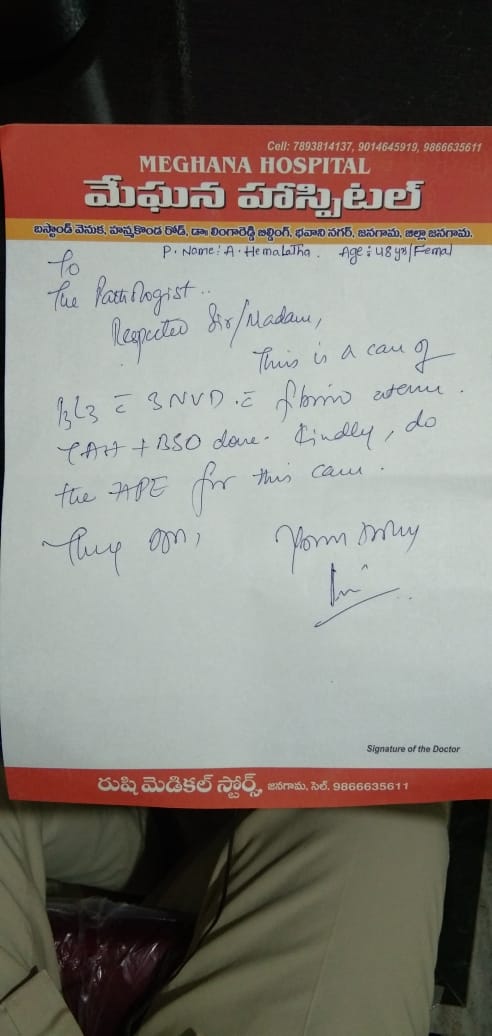 Cell: 7893814137, 9014645919, 9866635611
MEGHANA HOSPITAL
మేఘన హాస్పిటల్
బస్టాండ్ వెనుక, హన్మకొండ రోడ్, డా॥ లింగారెడ్డి బిల్డింగ్, భవాని నగర్, జనగామ, జిల్లా జనగామ.
P. Name: A. Hemalatha. Age: 48 yrs/Femal
To
The Pathologist..
Respected Sir/Madam,
This is a case of
P3L3 c̄ 3 NVD c̄ fibroid uterus.
TAH + BSO done. Kindly, do
the HPE for this case.
Thank you,
Signature of the Doctor
రుషి మెడికల్ స్టోర్స్, జనగామ, సెల్. 9866635611